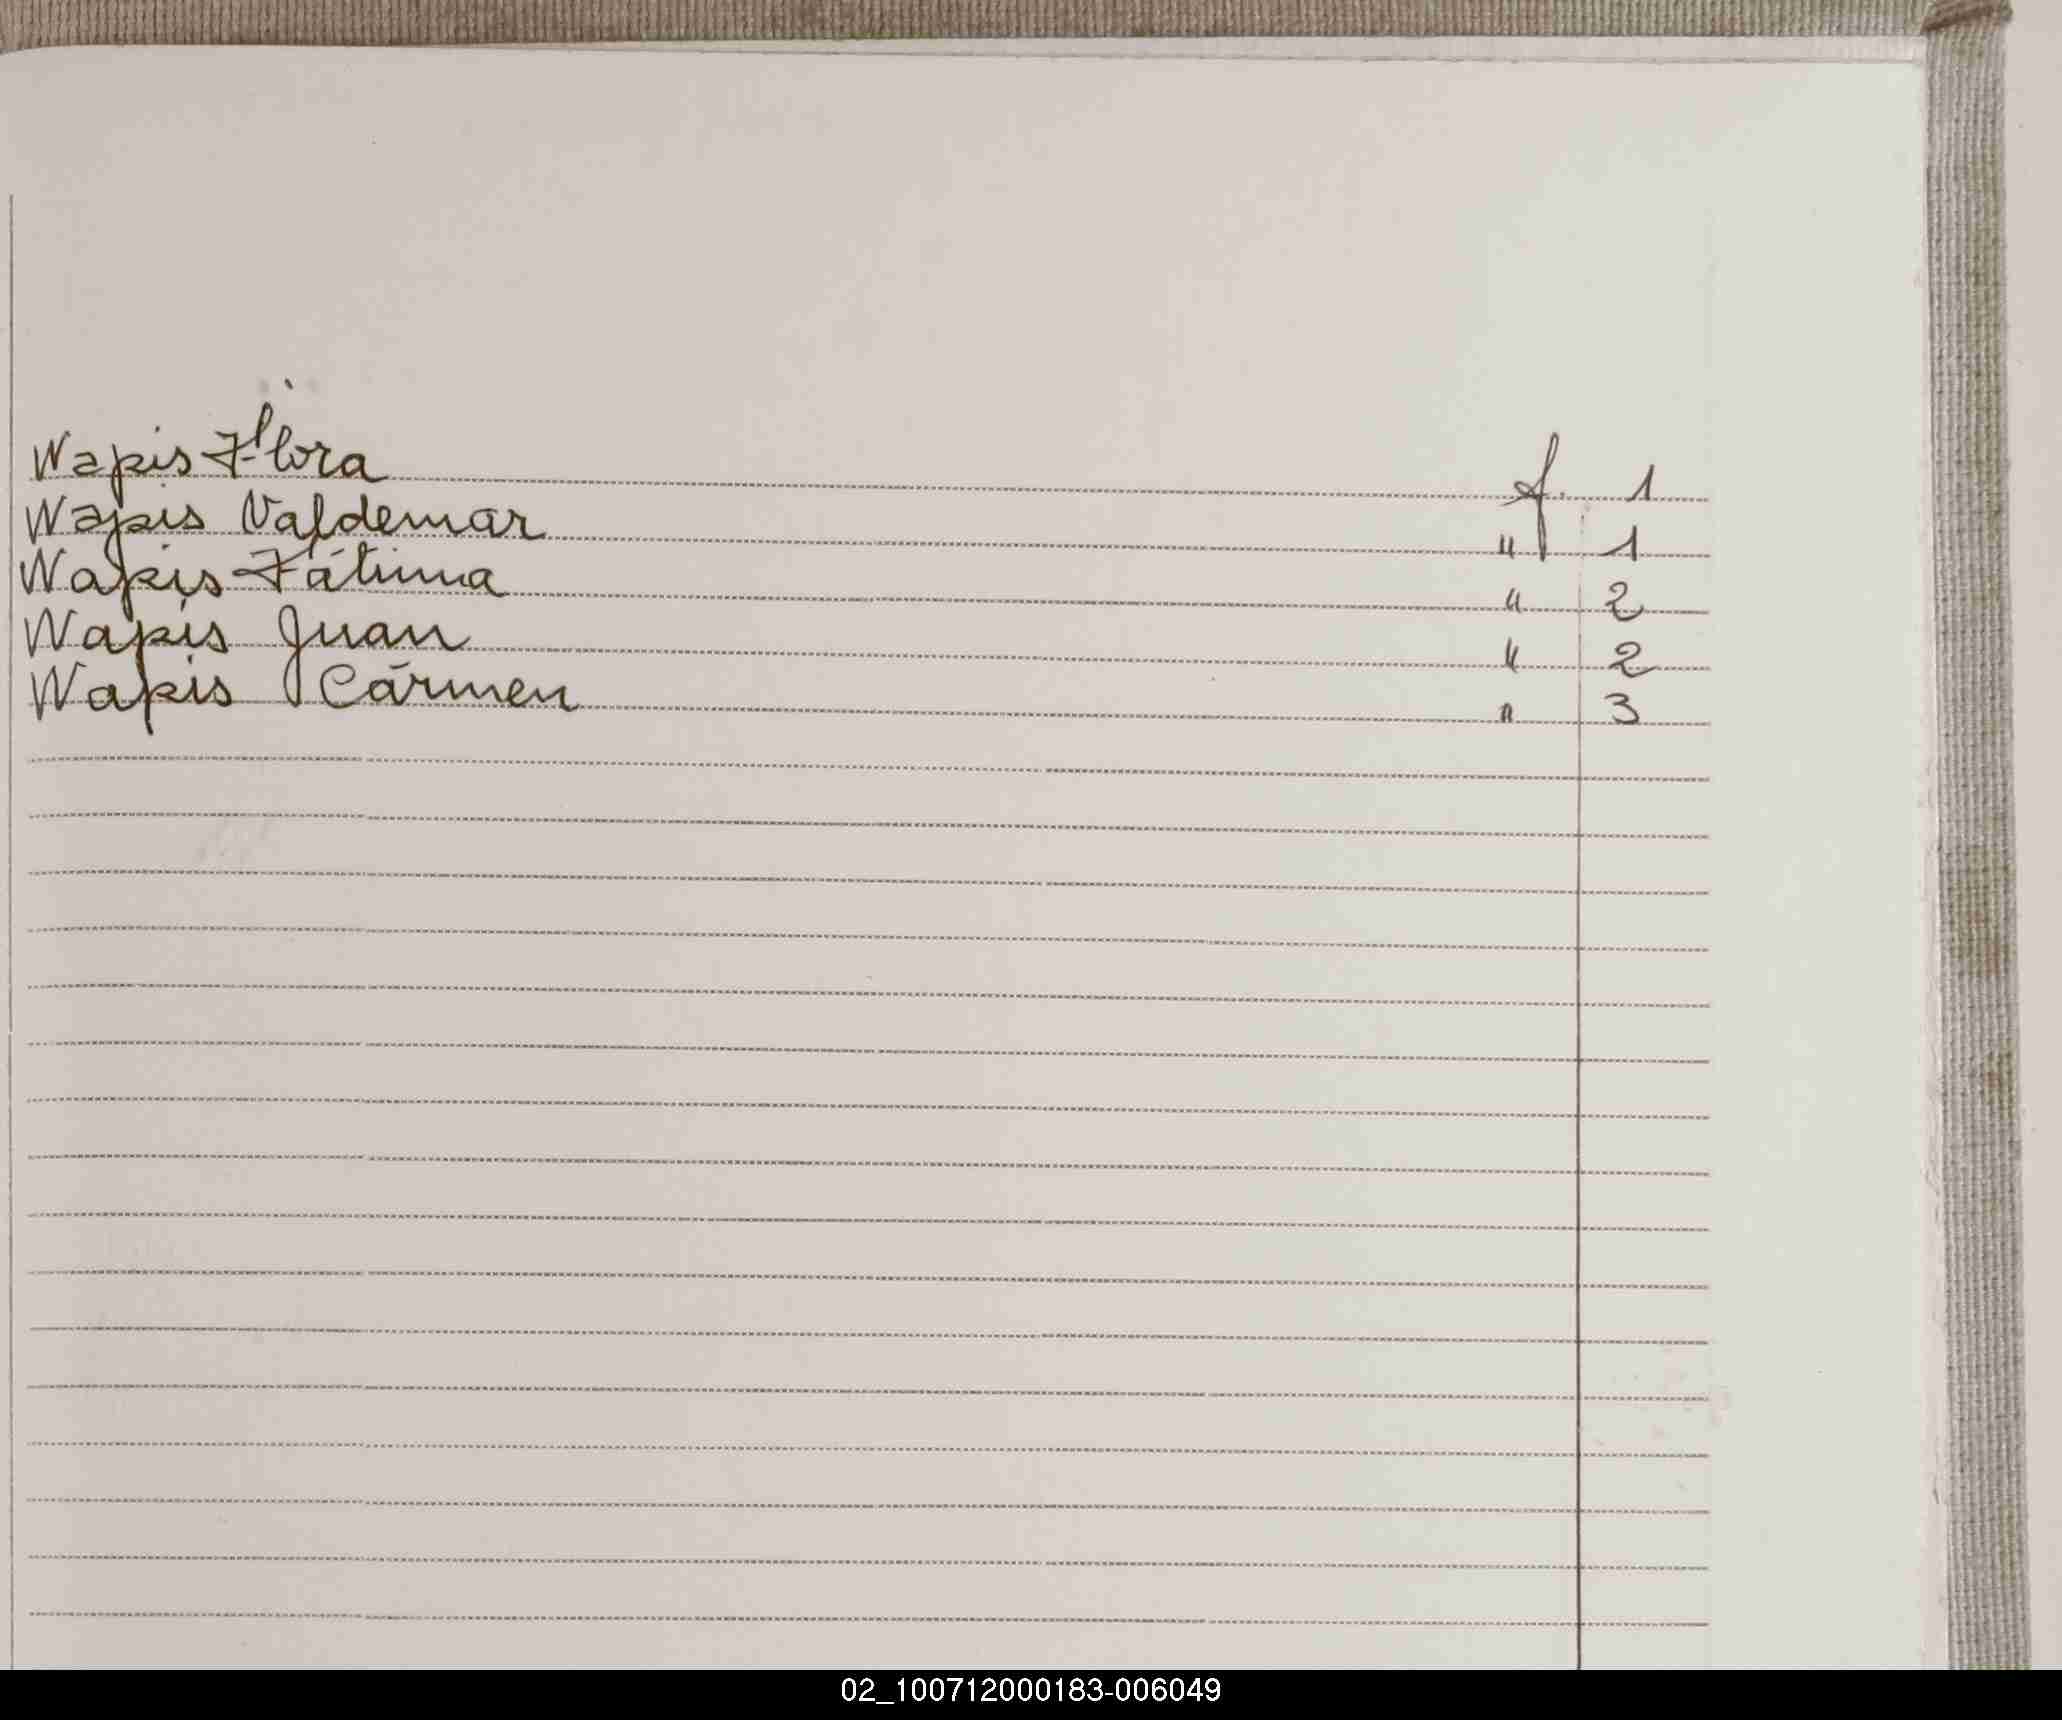 Wapis Flora f. 1
Wapis Valdemar " 1
Wapis Fátima " 2
Wapis Juan " 2
Wapis Cármen " 3
02_100712000183-006049